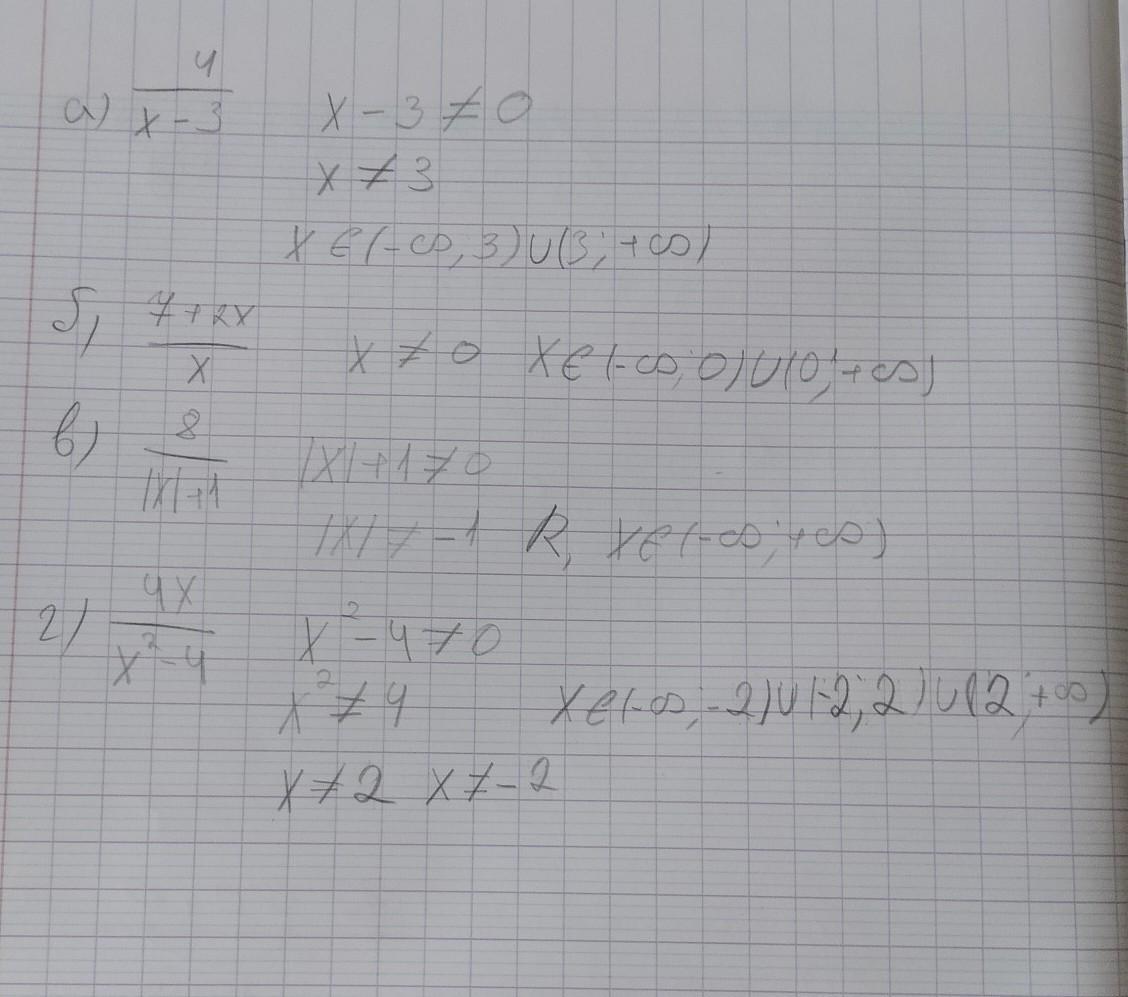 а) 4/(x - 3)   x - 3 ≠ 0
x ≠ 3
x ∈ (-∞, 3) ∪ (3; +∞)
б) (7 + 2x)/x   x ≠ 0   x ∈ (-∞; 0) ∪ (0; +∞)
в) 8/(|x| + 1)   |x| + 1 ≠ 0
|x| ≠ -1   R, x ∈ (-∞; +∞)
г) 4x/(x² - 4)   x² - 4 ≠ 0
x² ≠ 4   x ∈ (-∞; -2) ∪ (-2; 2) ∪ (2; +∞)
x ≠ 2   x ≠ -2